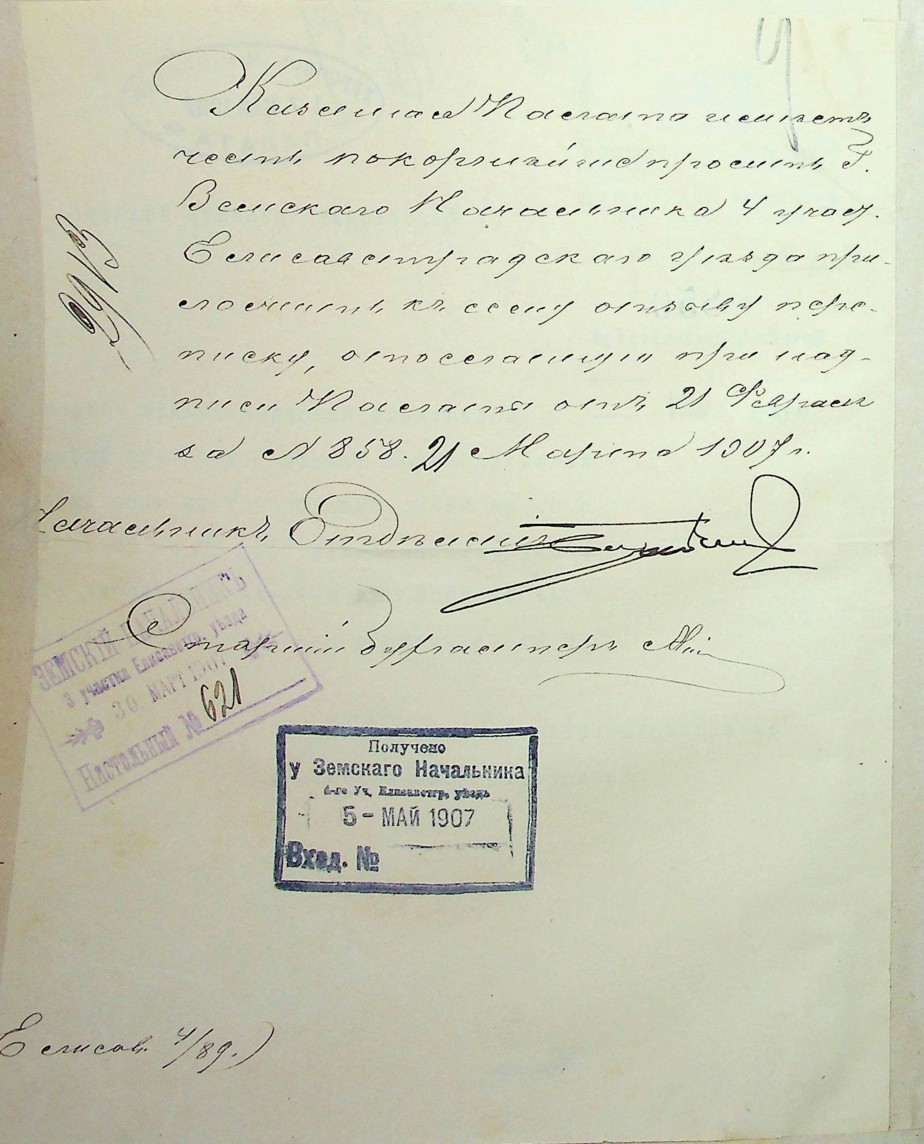 4
Казенная Палата имѣетъ
честь покорнѣйше просить Г.
Земскаго Начальника 4 участ.
Елисаветградскаго уѣзда при-
ложить къ сему отзыву пере-
писку, отосланную при над-
писи Палаты отъ 21 Февраля
за N 858. 21 Марта 1907 г.
Начальникъ Отдѣленія
Старшій Бухгалтеръ
ЗЕМСКІЙ НАЧАЛЬНИКЪ
3 участка Елисаветр. уѣзда
30 МАРТ 1907
Настольный № 621
Получено
у Земскаго Начальника
4-го Уч. Елисаветгр. уѣздъ
5 - МАЙ 1907
Вход. №
Елисов. 4/89.)